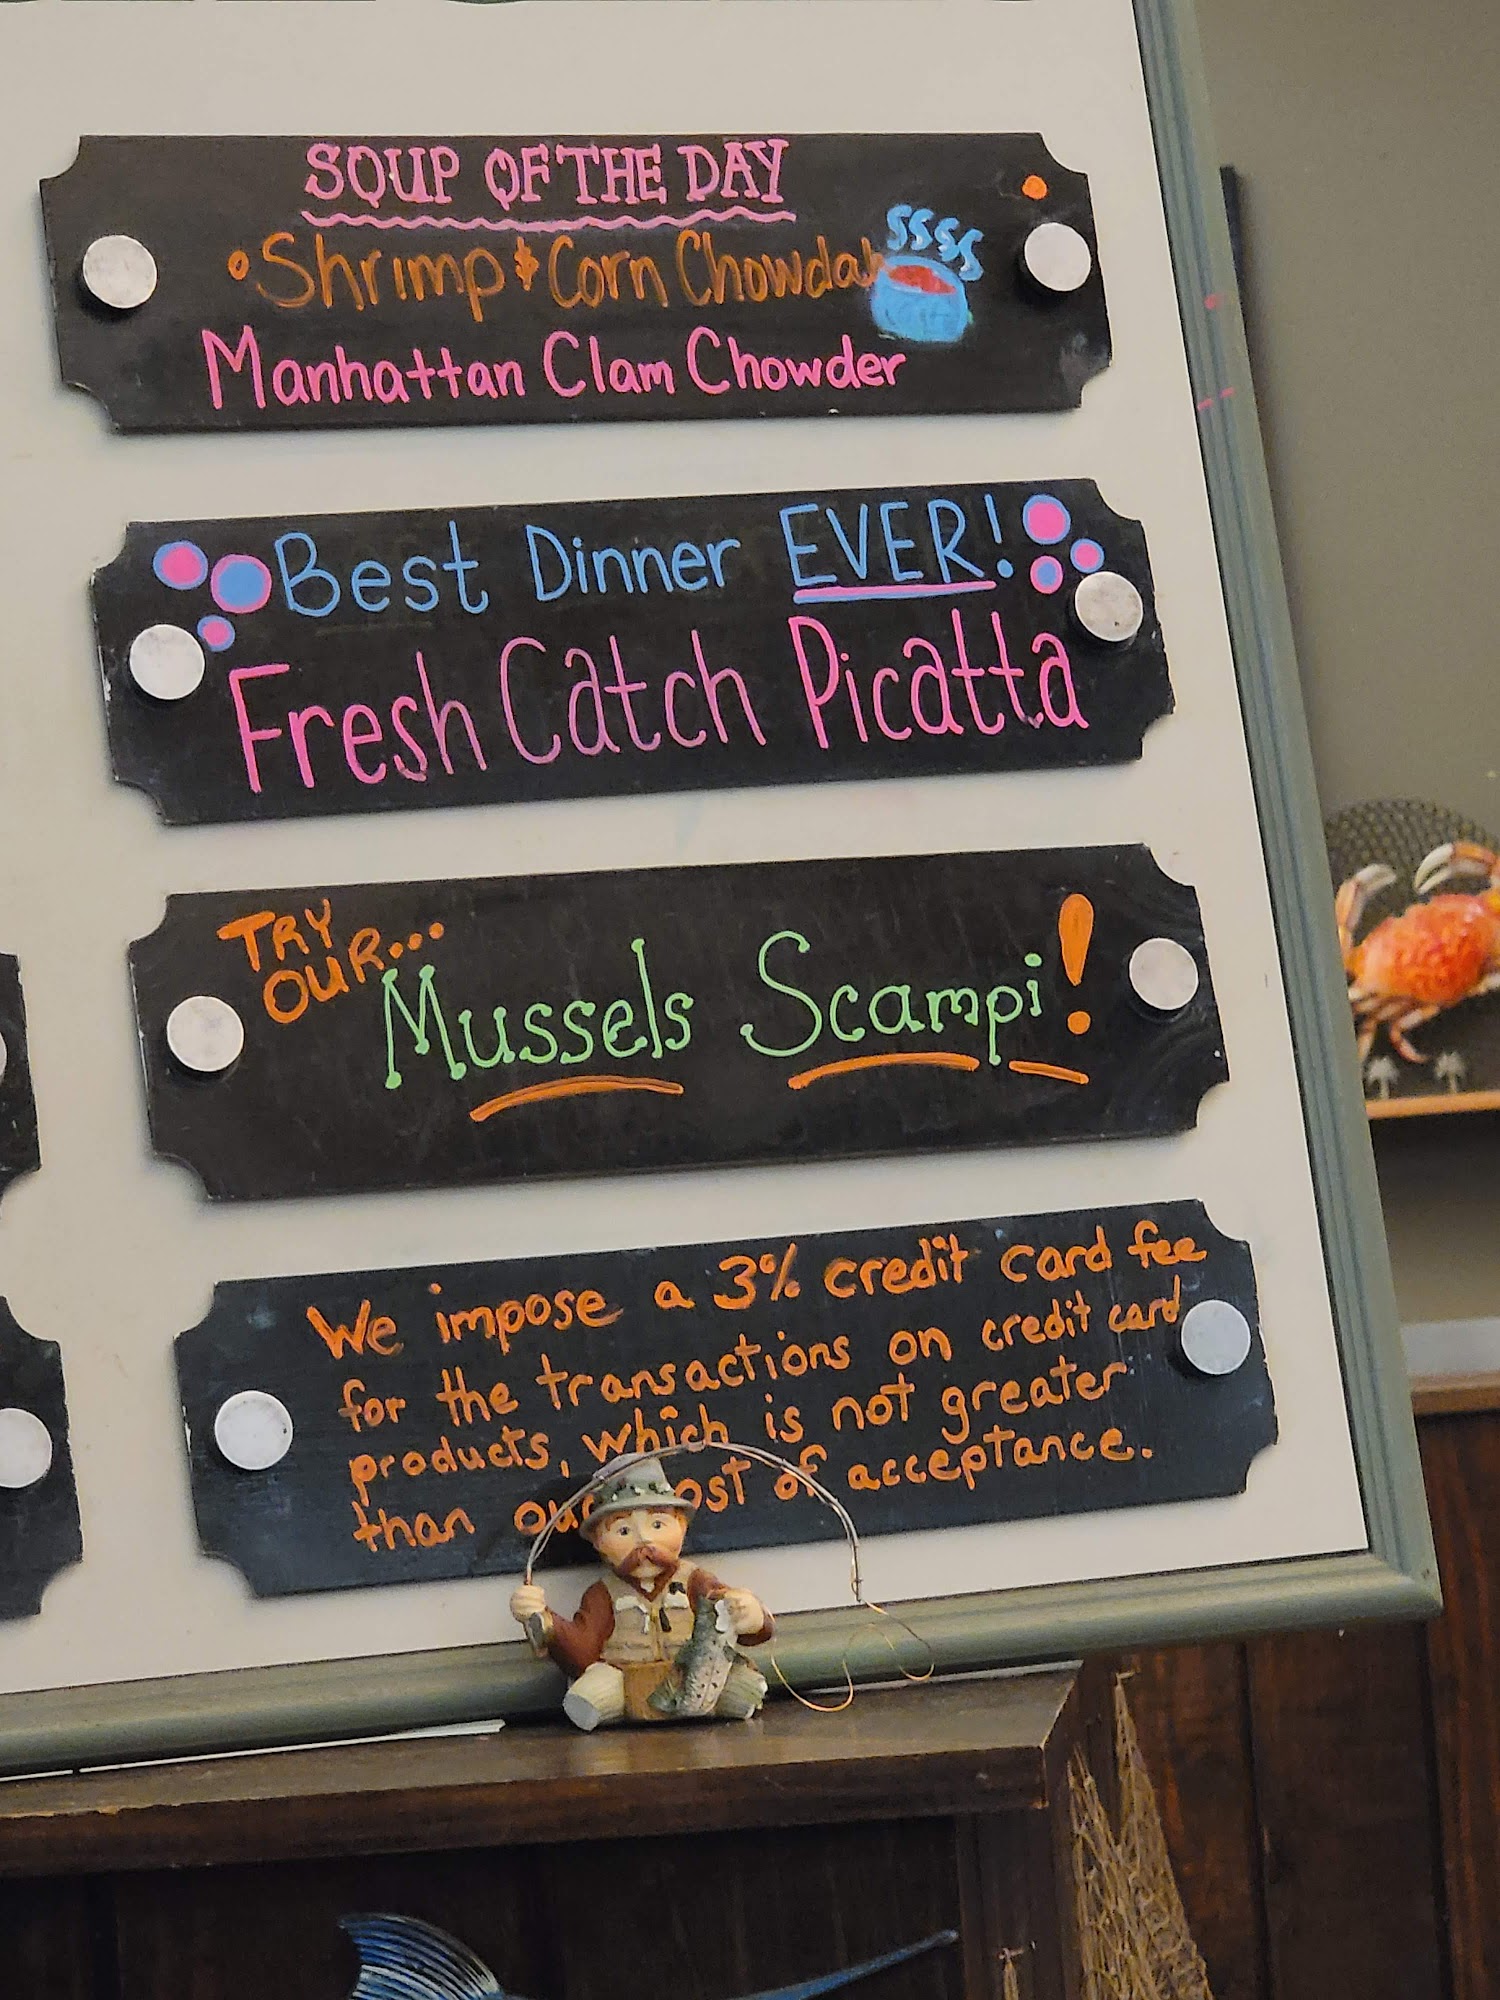 SOUP OF THE DAY
• Shrimp & Corn Chowdah
Manhattan Clam Chowder
Best Dinner EVER!
Fresh Catch Picatta
TRY
OUR...
Mussels Scampi!
We impose a 3% credit card fee
for the transactions on credit card
products, which is not greater
than our cost of acceptance.